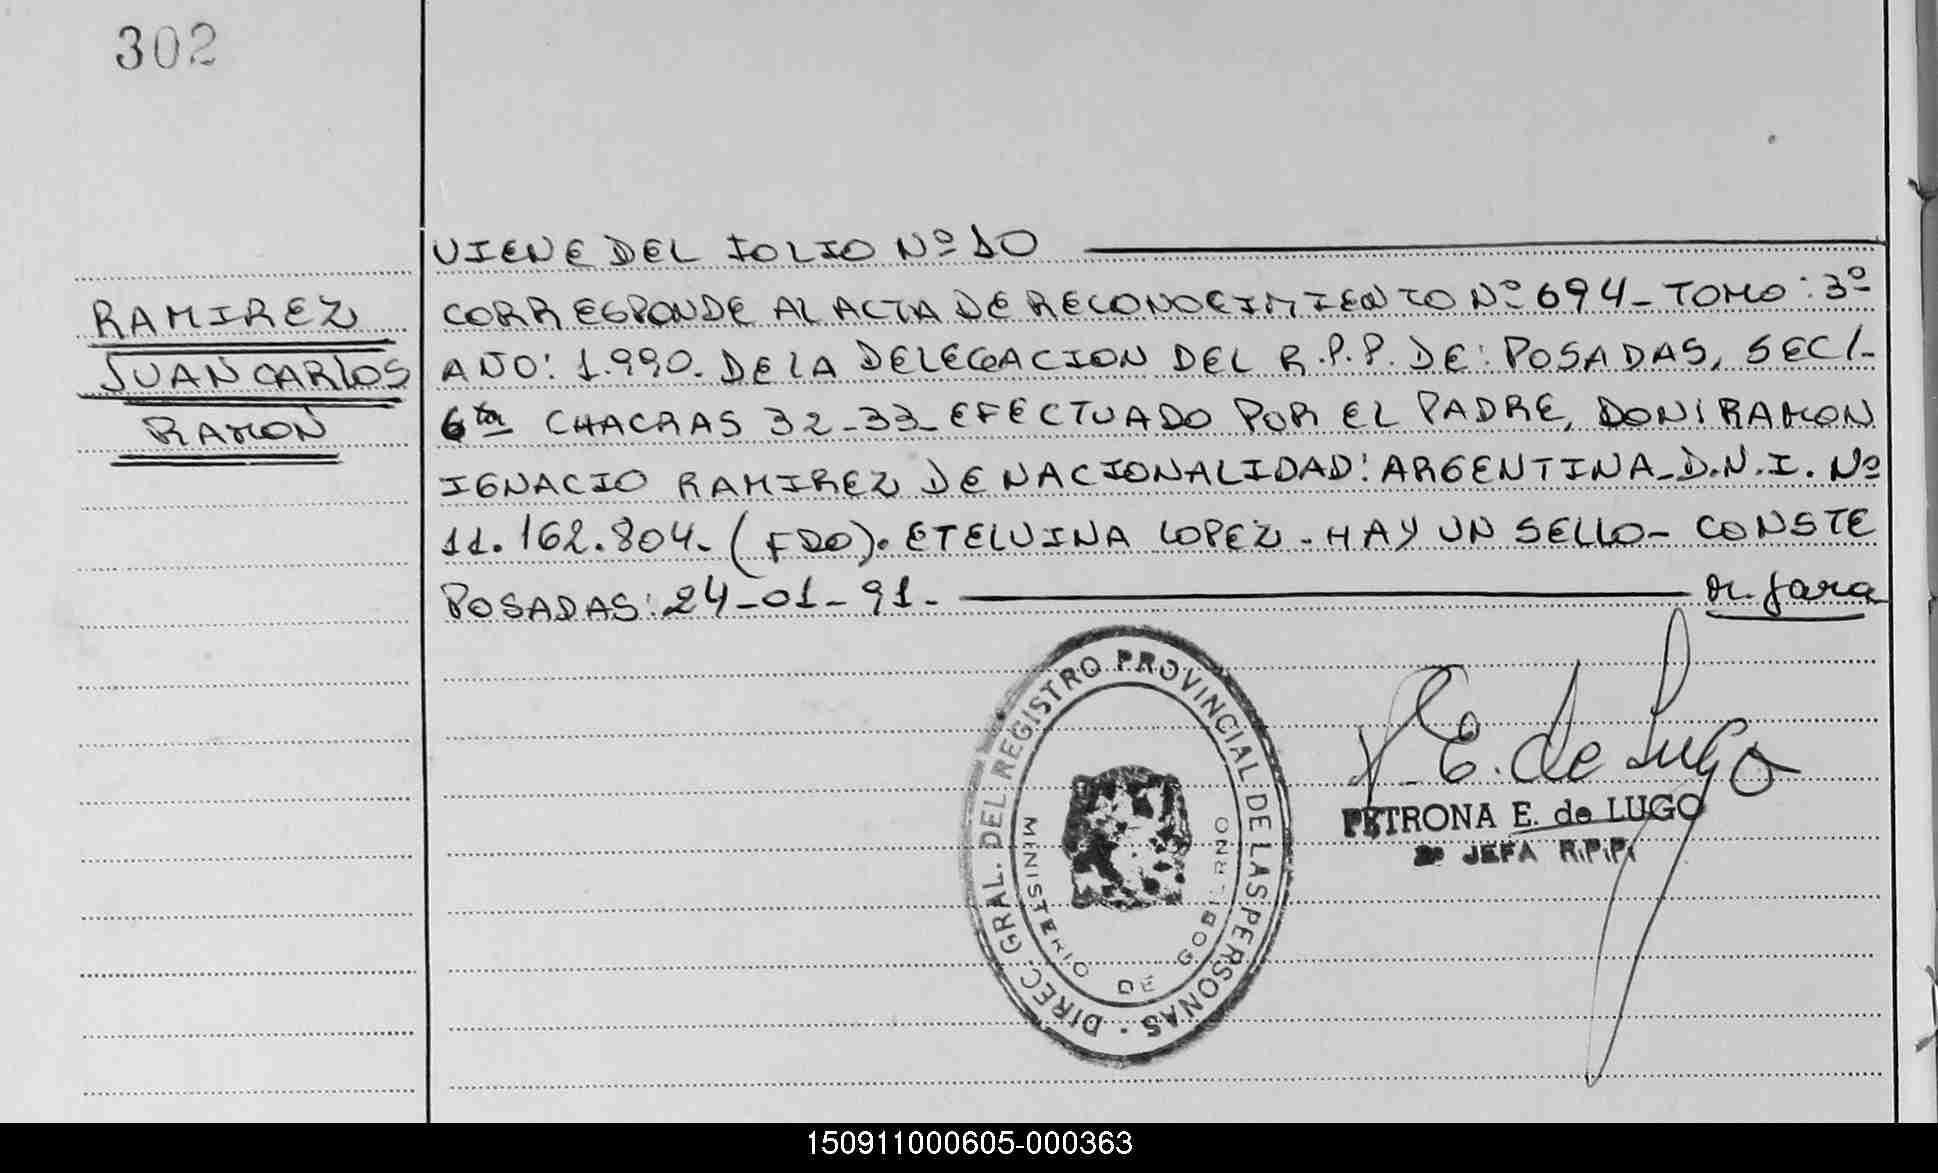 302
VIENE DEL FOLIO Nº 10
RAMIREZ
JUAN CARLOS
RAMON
CORRESPONDE AL ACTA DE RECONOCIMIENTO Nº 694 - TOMO: 3º
AÑO: 1.990. DE LA DELEGACION DEL R.P.P. DE: POSADAS, SEC/-
6ta CHACRAS 32-33- EFECTUADO POR EL PADRE, DON: RAMON
IGNACIO RAMIREZ DE NACIONALIDAD: ARGENTINA - D.N.I. Nº
11.162.804. (FDO). ETELVINA LOPEZ - HAY UN SELLO - CONSTE
POSADAS: 24-01-91.-
DIREC. GRAL. DEL REGISTRO PROVINCIAL DE LAS PERSONAS.
MINISTERIO DE GOBIERNO
E. de Lugo
PETRONA E. de LUGO
JEFA R.P.P.
150911000605-000363